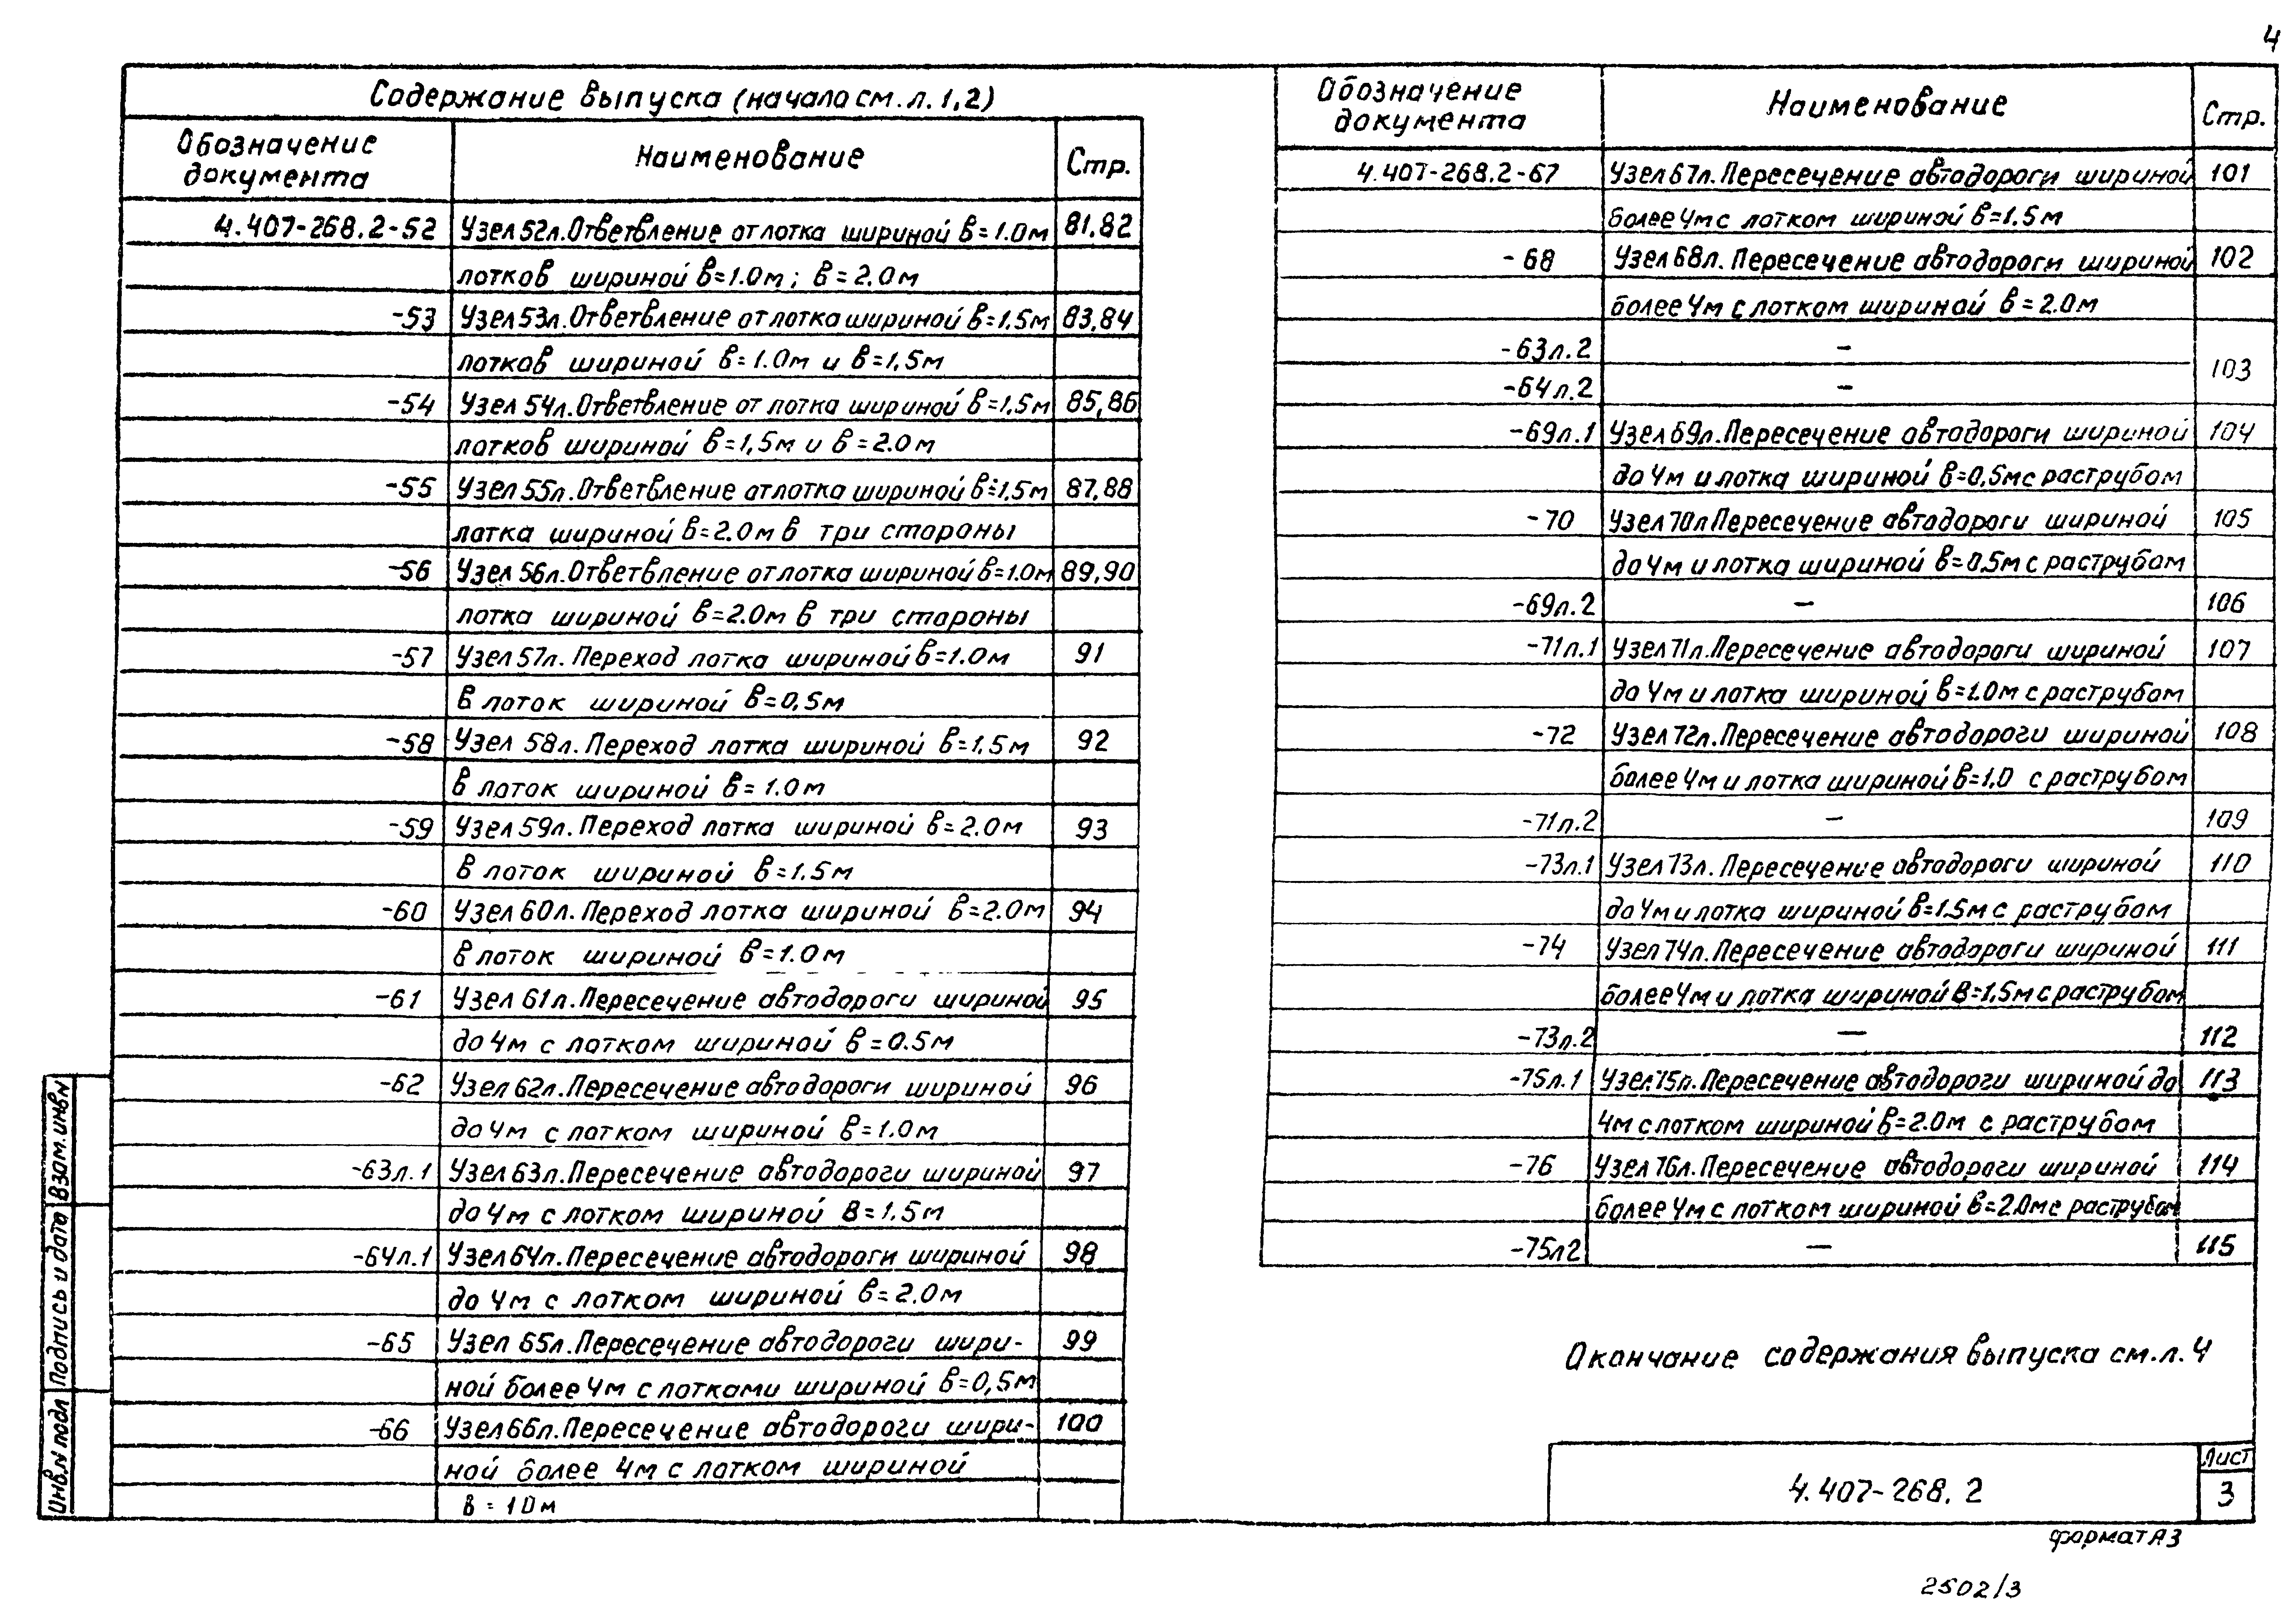 4
Содержание выпуска (начало см. л. 1,2)
Обозначение документа Наименование Стр.
4.407-268.2-52 Узел 52л. Ответвление от лотка шириной в=1.0м 81,82
лотков шириной в=1.0м; в=2.0м
-53 Узел 53л. Ответвление от лотка шириной в=1,5м 83,84
лотков шириной в=1.0м и в=1,5м
-54 Узел 54л. Ответвление от лотка шириной в=1,5м 85,86
лотков шириной в=1,5м и в=2.0м
-55 Узел 55л. Ответвление от лотка шириной в=1,5м 87,88
лотка шириной в=2.0м в три стороны
-56 Узел 56л. Ответвление от лотка шириной в=1.0м 89,90
лотка шириной в=2.0м в три стороны
-57 Узел 57л. Переход лотка шириной в=1.0м 91
в лоток шириной в=0,5м
-58 Узел 58л. Переход лотка шириной в=1,5м 92
в лоток шириной в=1.0м
-59 Узел 59л. Переход лотка шириной в=2.0м 93
в лоток шириной в=1.5м
-60 Узел 60л. Переход лотка шириной в=2.0м 94
в лоток шириной в=1.0м
-61 Узел 61л. Пересечение автодороги шириной 95
до 4м с лотком шириной в=0.5м
-62 Узел 62л. Пересечение автодороги шириной 96
до 4м с лотком шириной в=1.0м
-63л.1 Узел 63л. Пересечение автодороги шириной 97
до 4м с лотком шириной В=1,5м
-64л.1 Узел 64л. Пересечение автодороги шириной 98
до 4м с лотком шириной в=2.0м
-65 Узел 65л. Пересечение автодороги шири- 99
ной более 4м с лотками шириной в=0,5м
-66 Узел 66л. Пересечение автодороги шири- 100
ной более 4м с лотком шириной
в=10м
Обозначение документа Наименование Стр.
4.407-268.2-67 Узел 67л. Пересечение автодороги шириной 101
более 4м с лотком шириной в=1.5м
-68 Узел 68л. Пересечение автодороги шириной 102
более 4м с лотком шириной в=2.0м
-63л.2 –
103
-64л.2 –
-69л.1 Узел 69л. Пересечение автодороги шириной 104
до 4м и лотка шириной в=0,5м с раструбом
-70 Узел 70л Пересечение автодороги шириной 105
до 4м и лотка шириной в=0.5м с раструбом
-69л.2 – 106
-71л.1 Узел 71л. Пересечение автодороги шириной 107
до 4м и лотка шириной в=1.0м с раструбом
-72 Узел 72л. Пересечение автодороги шириной 108
более 4м и лотка шириной в=1,0 с раструбом
-71л.2 – 109
-73л.1 Узел 73л. Пересечение автодороги шириной 110
до 4м и лотка шириной в=1.5м с раструбом
-74 Узел 74л. Пересечение автодороги шириной 111
более 4м и лотка шириной В=1,5м с раструбом
-73л.2 – 112
-75л.1 Узел 75л. Пересечение автодороги шириной до 113
4м с лотком шириной в=2.0м с раструбом
-76 Узел 76л. Пересечение автодороги шириной 114
более 4м с лотком шириной в=2.0м с раструбом
-75л2 – 115
Окончание содержания выпуска см. л. 4
4.407-268.2
Лист
3
формат А3
2502/3
Инв.N подл Подпись и дата Взам.инв.N